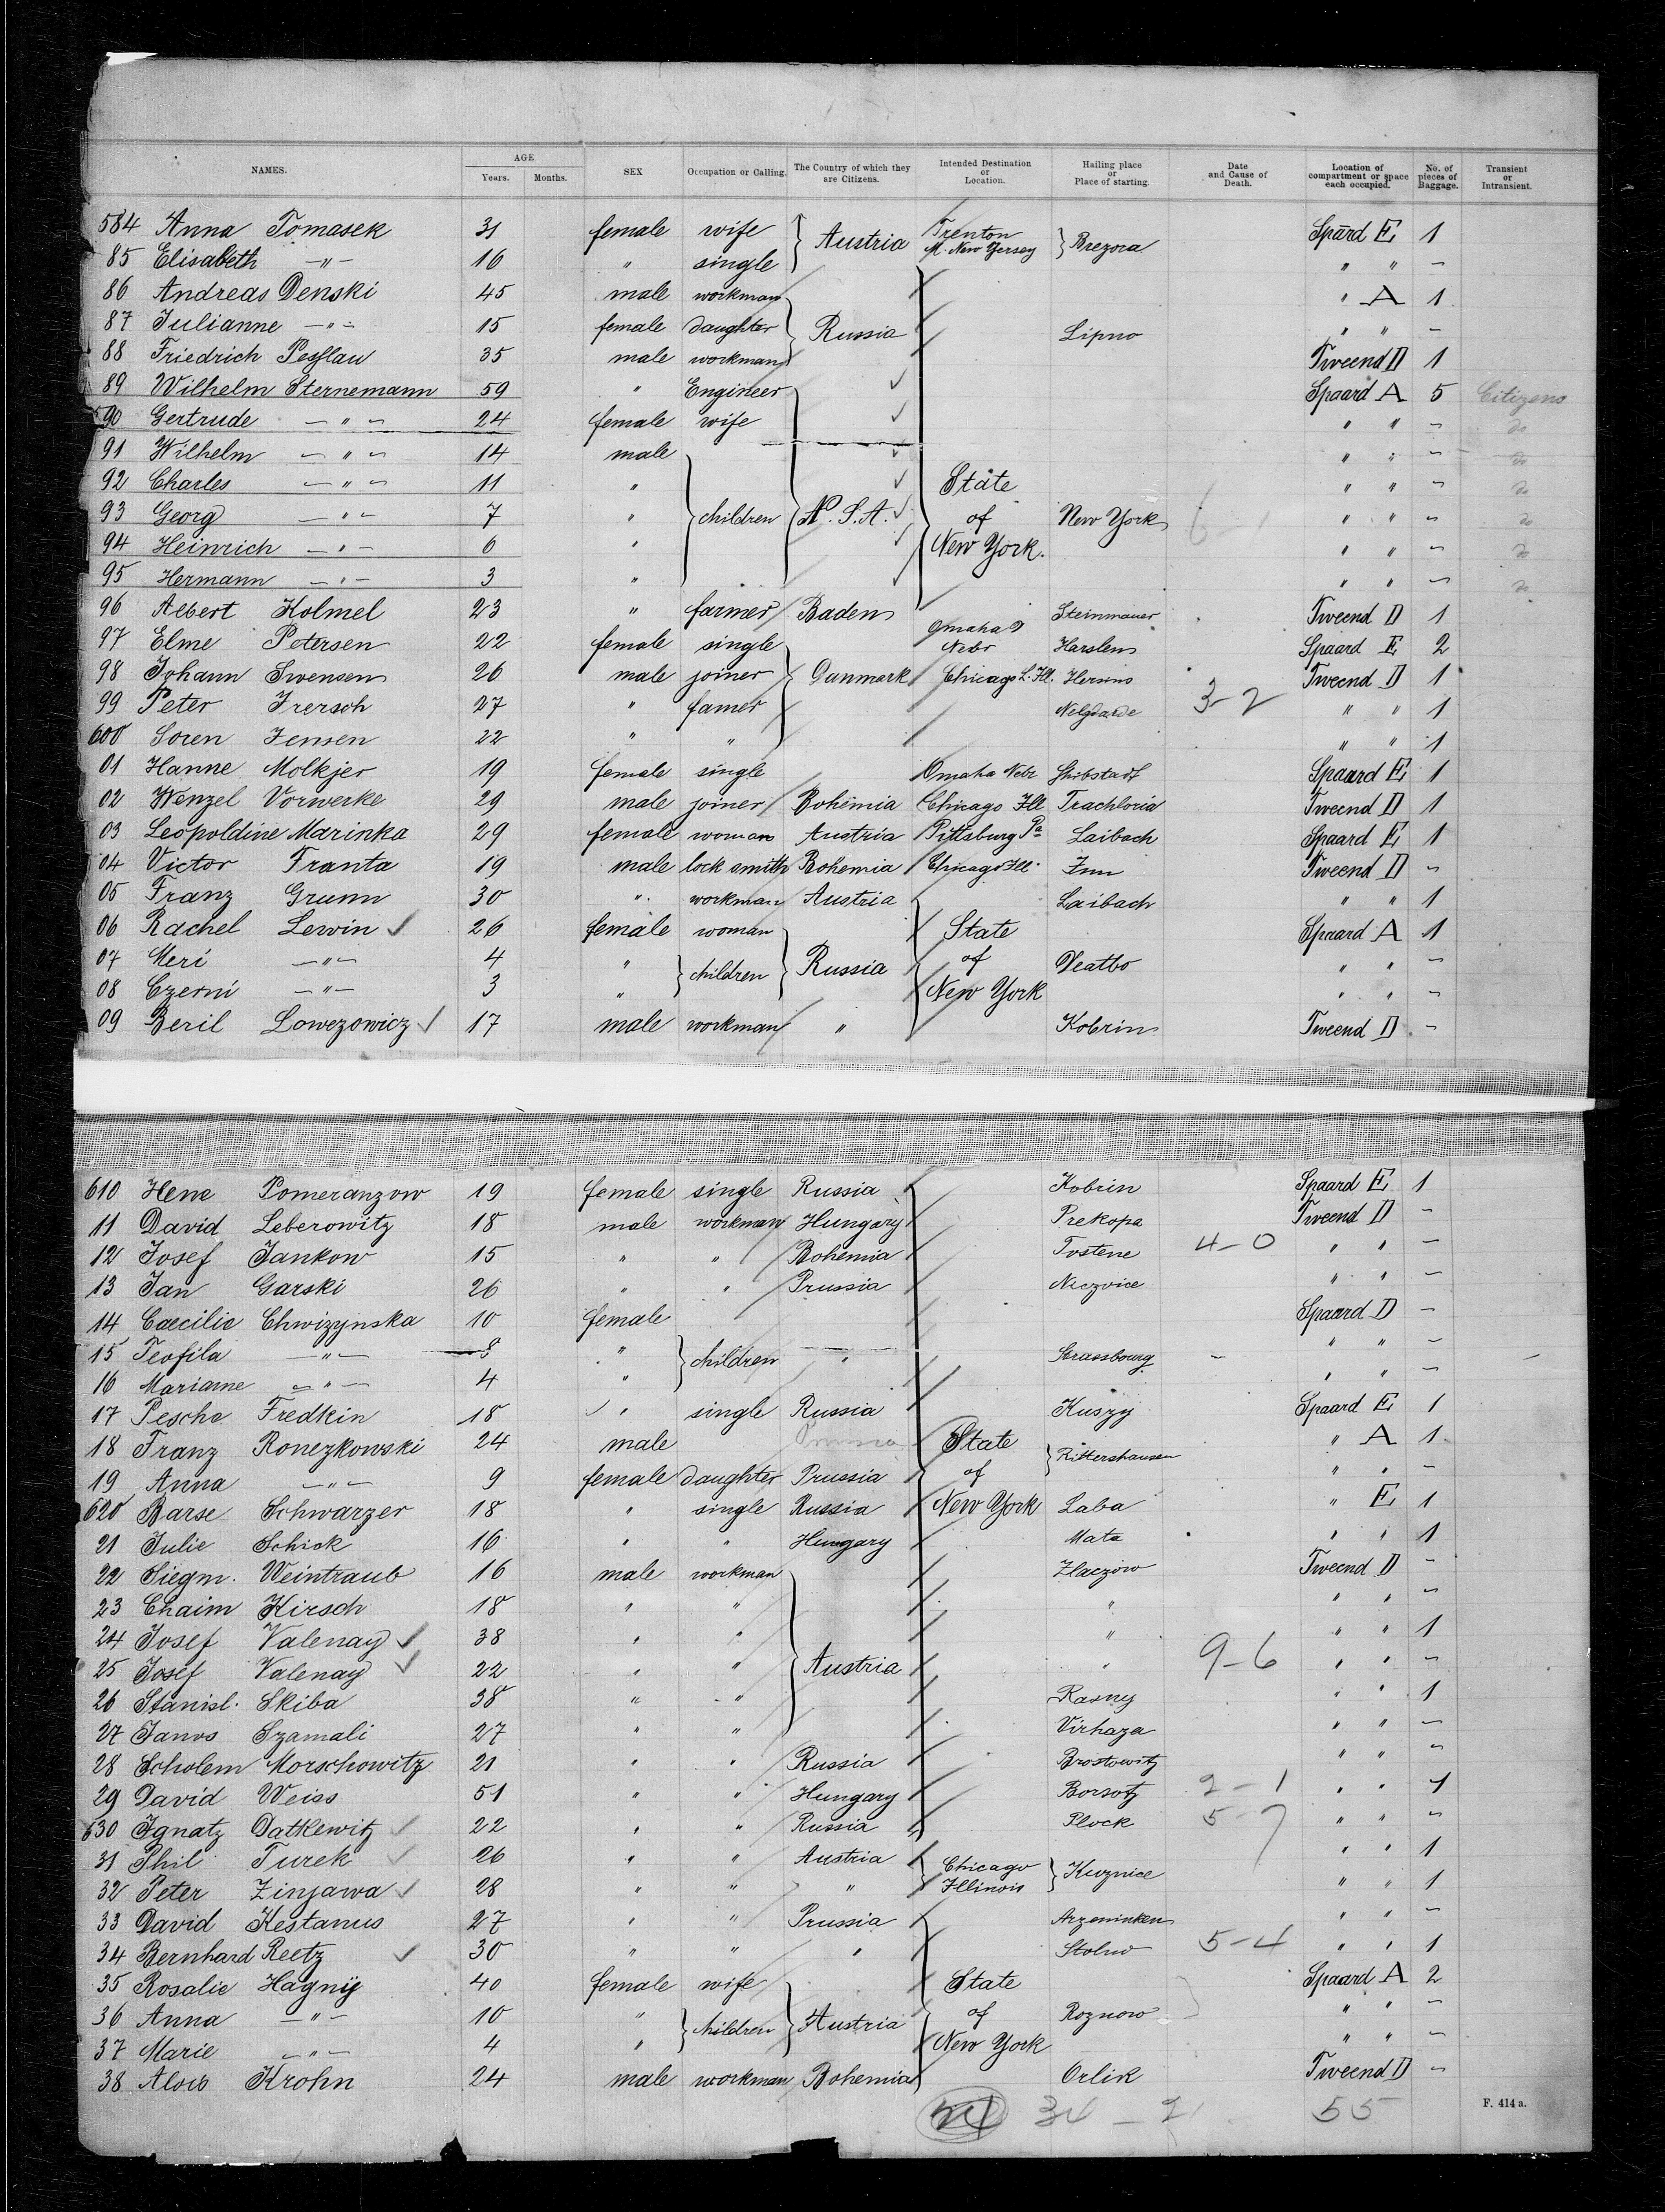 NAMES. AGE Years. Months. SEX Occupation or Calling. The Country of which they are Citizens. Intended Destination or Location. Hailing place or Place of starting. Date and Cause of Death. Location of compartment or space each occupied. No. of pieces of Baggage. Transient or Intransient.
584 Anna Tomasek 31 female wife Austria Trenton New Jersey Brezova Spard E 1
85 Elisabeth -"- 16 " single " " -
86 Andreas Denski 45 male workman " A 1
87 Julianne -"- 15 female daughter Russia Lipno " " -
88 Friedrich 35 male workman Tweend D 1
89 Wilhelm Sternemann 59 " Engineer Spaard A 5 Citizens
590 Gertrude -"- 24 female wife " " - do
91 Wilhelm -"- 14 male " " - do
92 Charles -"- 11 " State " " - do
93 Georg -"- 7 " children N. S. A. of New York " " - do
94 Heinrich -"- 6 " New York. " " - do
95 Hermann -"- 3 " " " - do
96 Albert Kolmel 23 " farmer Baden Steinmauer Tweend D 1
97 Elme Petersen 22 female single Omaha Nebr Harslem Spaard E 2
98 Johann Swensen 26 male joiner Danmark Chicago Ill. Tweend D 1
99 Peter 27 " famer 3-2 " " 1
600 Soren Jensen 22 " " " " 1
01 Hanne Molkjer 19 female single Omaha Nebr Spaard E 1
02 Wenzel Vorwerke 29 male joiner Bohemia Chicago Ill Trachloria Tweend D 1
03 Leopoldine Marinka 29 female woman Austria Pittsburg Pa Laibach Spaard E 1
04 Victor Franta 19 male lock smith Bohemia Chicago Ill. Tweend D -
05 Franz Grumm 30 " workman Austria Laibach " " 1
06 Rachel Lewin 26 female woman State Spaard A 1
07 Meri -"- 4 " children Russia of " " -
08 Czerni -"- 3 " New York " " -
09 Beril Lowezowicz 17 male workman " Kobrin Tweend D -
610 Hene Pomeranzow 19 female single Russia Kobrin Spaard E 1
11 David Leberowitz 18 male workman Hungary Prekopa Tweend D -
12 Josef Jankow 15 " " Bohemia Tostene 4-0 " " -
13 Jan Garski 26 " " Prussia " " -
14 Caecilie Chwizynska 10 female Spaard D -
15 Teofila -"- 8 " children " Strassbourg " " -
16 Marianne -"- 4 " " " -
17 Pesche Fredkin 18 " single Russia Kuszy Spaard E 1
18 Franz Ronezkowski 24 male Prussia State Rittershausen " A 1
19 Anna -"- 9 female daughter Prussia of " " -
620 Barse Schwarzer 18 " single Russia New York Laba " E 1
21 Julie Schick 16 " " Hungary Mata " " 1
22 Siegm. Weintraub 16 male workman Zlaczow Tweend D -
23 Chaim Kirsch 18 " " " " " -
24 Josef Valenay 38 " " " " " 1
25 Josef Valenay 22 " " Austria " 9-6 " " -
26 Stanisl. Skiba 38 " " Rasny " " 1
27 Janos Szamali 27 " " Virhaza " " -
28 Scholem Morschowitz 21 " " Russia Brostowitz " " -
29 David Weiss 51 " " Hungary Borsotz 2-1 " " 1
630 Ignatz Datkewitz 22 " " Russia Plock 5-7 " " -
31 Phil. Turek 26 " " Austria Chicago Illinois Kuznice " " 1
32 Peter Zinjawa 28 " " " " " 1
33 David Kestanus 27 " " Prussia Arzeninken " " -
34 Bernhard Reetz 30 " " " Stolno 5-4 " " 1
35 Rosalie Hagny 40 female wife State Spaard A 2
36 Anna -"- 10 " children Austria of Roznow " " -
37 Marie -"- 4 " New York " " -
38 Alois Krohn 24 male workman Bohemia Orlik Tweend D -
34 - 21 55
F. 414 a.